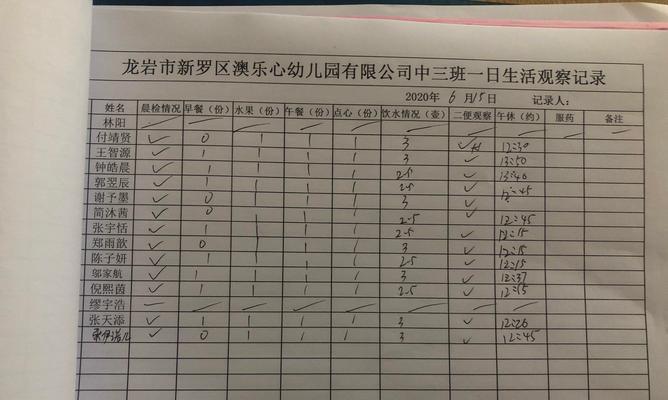 龙岩市新罗区澳乐心幼儿园有限公司中三班一日生活观察记录
2020年 6 月15日 记录人:
姓名 晨检情况 早餐（份） 水果（份） 午餐（份） 点心（份） 饮水情况（壶） 二便观察 午休（约） 服药 备注
林阳 / / / / / / / /
付靖贤 ✓ 0 1 1 1 3 ✓ 12:30
王智源 ✓ 1 1 1 1 3 ✓ 13:50
钟皓晨 ✓ 1 1 1 1 2.5 ✓ 13:40
郭翌辰 ✓ 1 1 1 1 2.5 ✓
谢予墨 ✓ 0 1 1 1 3 ✓ 12:45
简沐茜 ✓ 0 1 1 1 2.5 ✓ 12:45
张宇恬 ✓ 1 1 1 1 2.5 ✓ 12:15
郑雨歆 ✓ 0 1 1 1 3 ✓ 12:15
陈子妍 ✓ 1 1 1 1 2.5 ✓ 12:15
邬家航 ✓ 1 1 1 1 3 ✓ 12:37
倪熙茵 ✓ 1 1 1 1 2.5 ✓ 12:15
缪宇浩 — / / / / / / /
张天添 ✓ 1 1 1 1 3 ✓ 12:26
✓ 0 1 1 1 3 ✓ 12:45